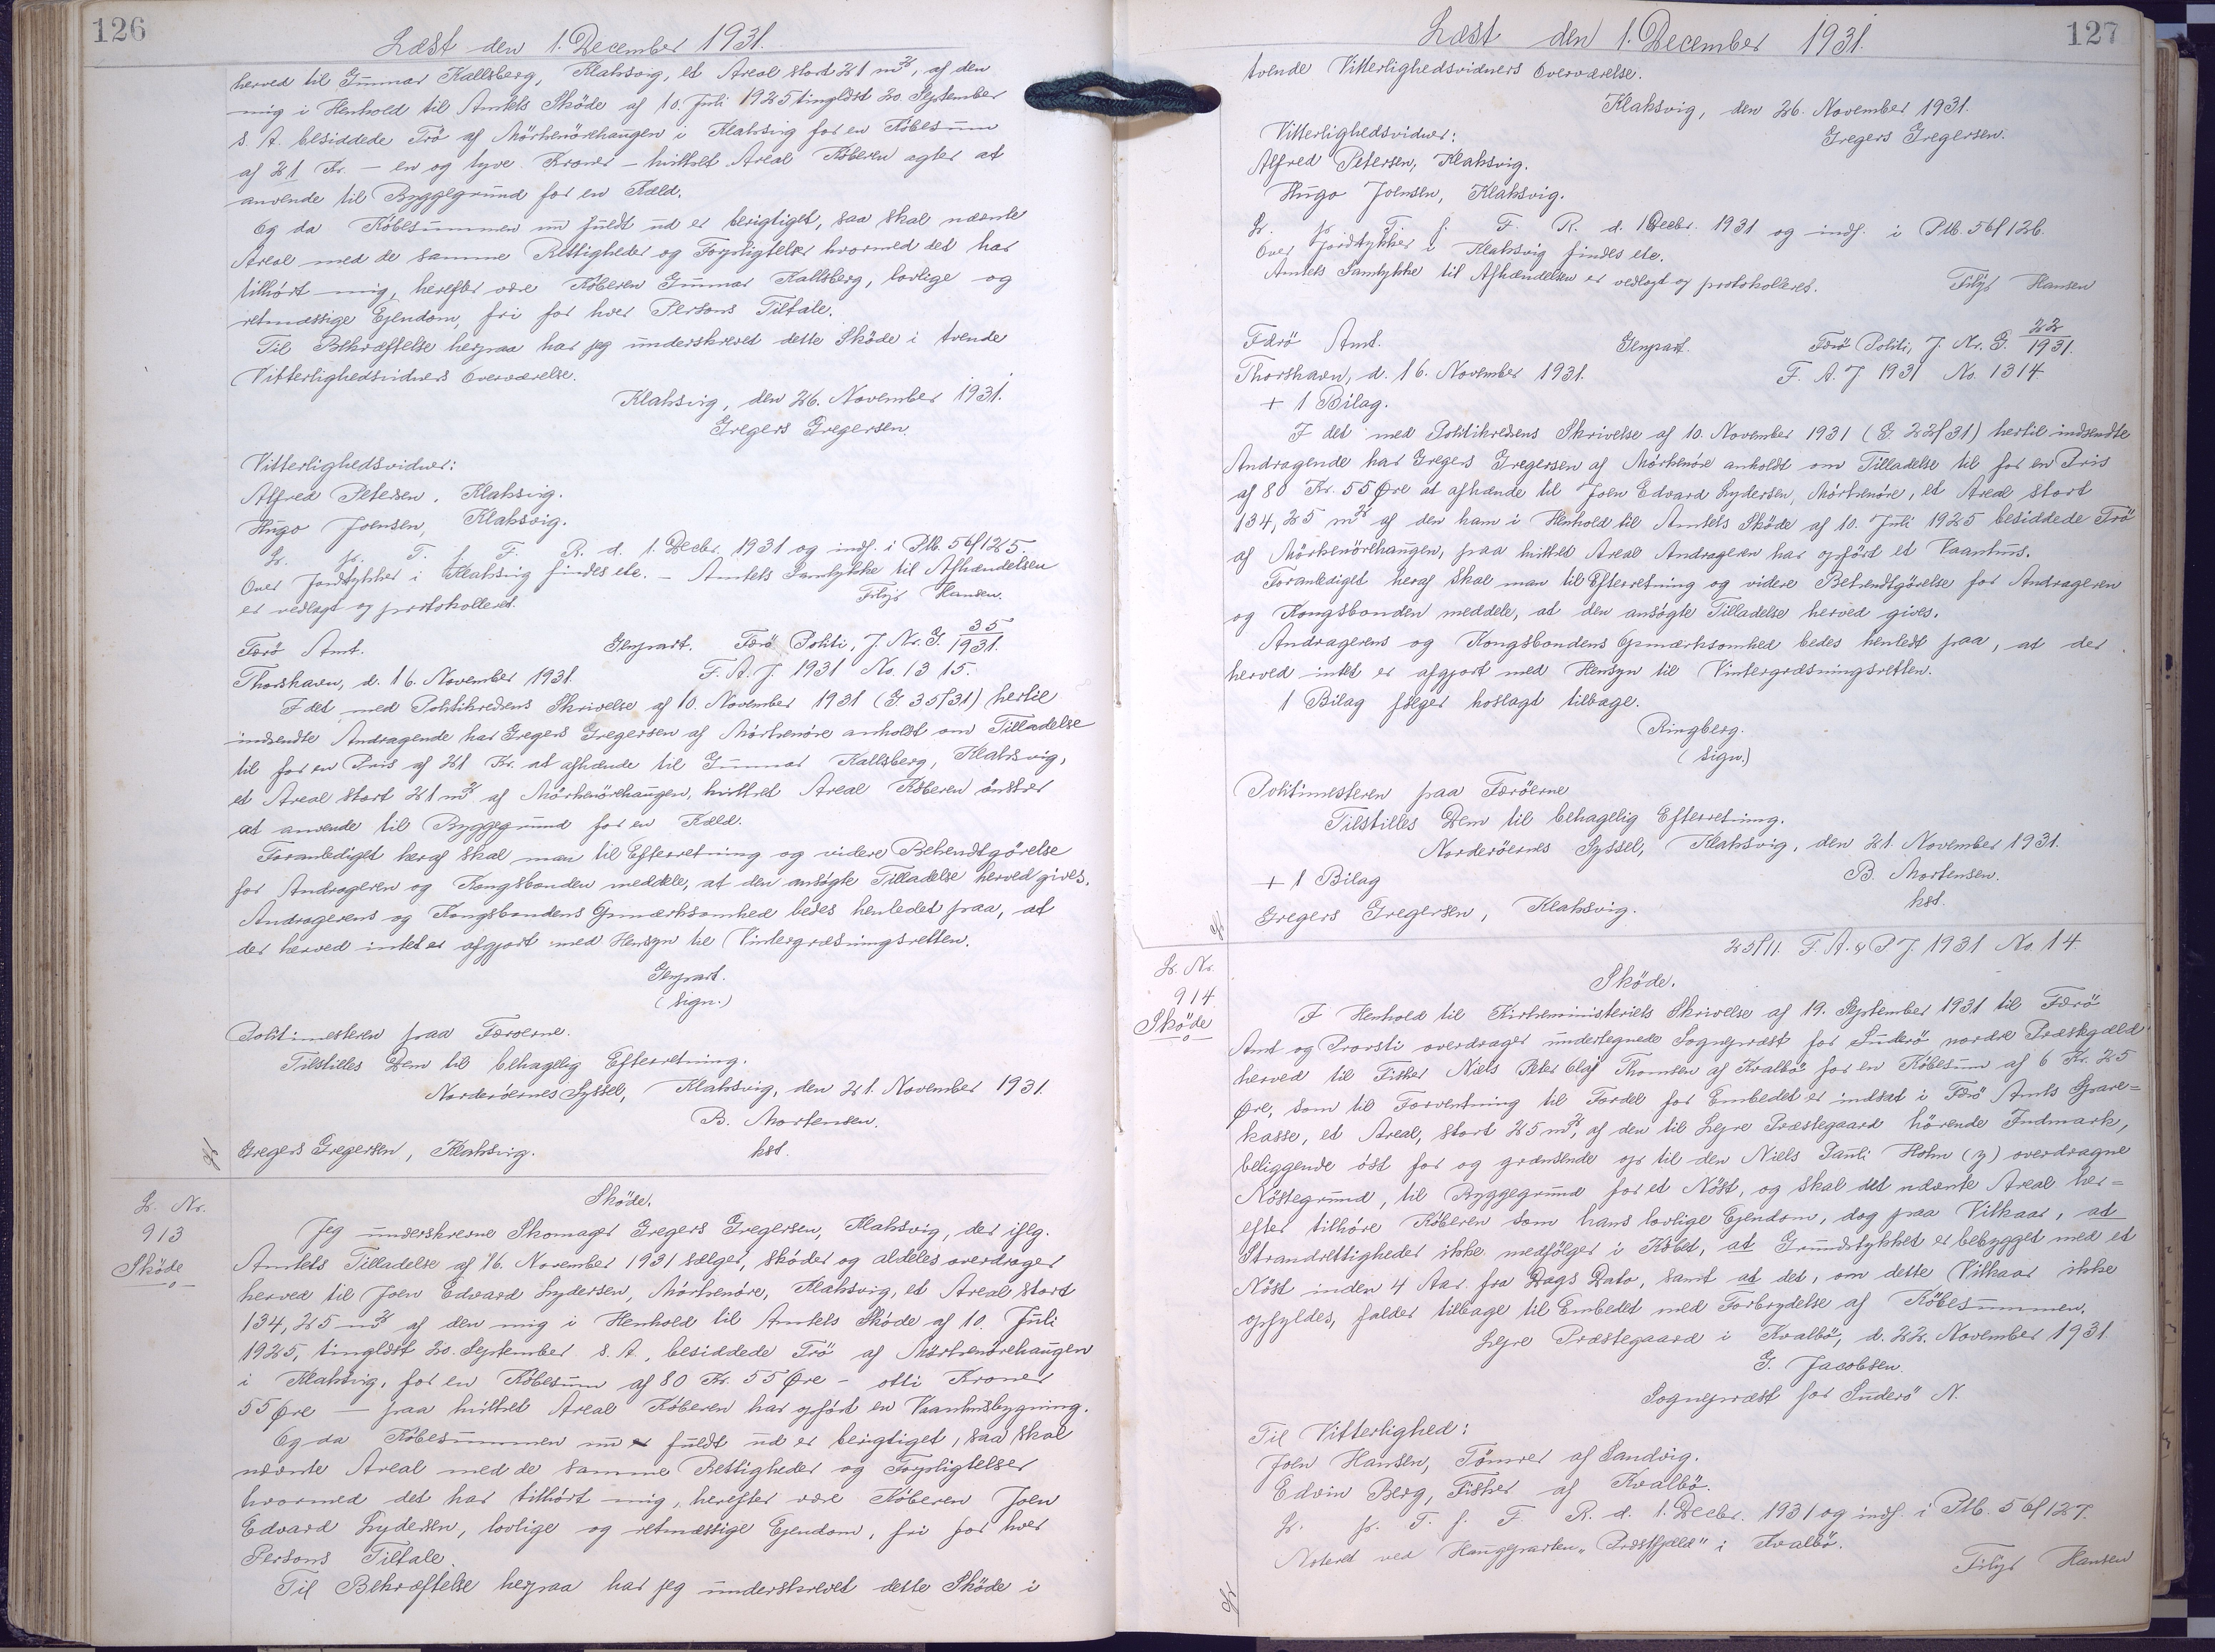 126
Læst den 1. December 1931.
herved til Gunnar Kallsberg, Klaksvig, et Areal stort 21 m², af den
mig i Henhold til Amtets Sköde af 10. Juli 1925 tinglöst 20. September
s. A. besiddede Trö af Mörkenörehaugen i Klaksvig for en Köbesum
af 21 Kr. – en og tyve Kroner – hvilket Areal Köberen agter at
anvende til Byggegrund for en Kæld.
Og da Köbesummen nu fuldt ud er berigtiget, saa skal nævnte
Areal med de samme Rettigheder og Forpligtelser hvormed det har
tilhört mig, herefter være Köberen Gunnar Kallsberg, lovlige og
retmæssige Ejendom, fri for hver Persons Tiltale.
Til Bekræftelse herpaa har jeg underskrevet dette Sköde i tvende
Vitterlighedsvidners Overværelse.
Klaksvig, den 26. November 1931.
Gregers Gregersen.
Vitterlighedsvidner:
Alfred Petersen, Klaksvig.
Hugo Joensen, Klaksvig.
L. p. T. f. F. R. d. 1. Decbr. 1931 og indf. i Ptb. 56/125.
Over Jordstykker i Klaksvig findes etc. – Amtets Samtykke til Afhændelsen
er vedlagt og protokolleret.
Filip Hansen.
Færö Amt. Genpart. Færö Politi, J. Nr. G. 35/1931.
Thorshavn, d. 16. November 1931. F. A. J. 1931 No. 1315.
I det med Politikredsens Skrivelse af 10. November 1931 (G. 35/31) hertil
indsendte Andragende har Gregers Gregersen af Mörkenöre anholdt om Tilladelse
til for en Pris af 21 Kr. at afhænde til Gunnar Kallsberg, Klaksvig,
et Areal stort 21 m² af Mörkenörehaugen, hvilket Areal Köberen önsker
at anvende til Byggegrund for en Kæld.
Foranlediget heraf skal man til Efterretning og videre Bekendtgörelse
for Andrageren og Kongsbonden meddele, at den ansögte Tilladelse herved gives.
Andragerens og Kongsbondens Opmærksomhed bedes henledet paa, at
der herved intet er afgjort med Hensyn til Vintergræsningsretten.
Genpart.
(sign.)
Politimesteren paa Færöerne.
Tilstilles Dem til behagelig Efterretning.
Norderöernes Syssel, Klaksvig, den 21. November 1931.
B. Mortensen.
Gregers Gregersen, Klaksvig. kst.
L. Nr.
913
Sköde
Sköde.
Jeg underskrevne Skomager Gregers Gregersen, Klaksvig, der iflg.
Amtets Tilladelse af 16. November 1931 sælger, sköder og aldeles overdrager
herved til Joen Edvard Lydersen, Mörkenöre, Klaksvig, et Areal stort
134,25 m² af den mig i Henhold til Amtets Sköde af 10. Juli
1925, tinglöst 20. September s. A., besiddede Trö af Mörkenörehaugen
i Klaksvig, for en Köbesum af 80 Kr. 55 Öre – otti Kroner
55 Öre – paa hvilket Areal Köberen har opfört en Vaanhusbygning.
Og da Köbesummen nu fuldt ud er berigtiget, saa skal
nævnte Areal med de samme Rettigheder og Forpligtelser
hvormed det har tilhört mig, herefter være Köberen Joen
Edvard Lydersen, lovlige og retmæssige Ejendom, fri for hver
Persons Tiltale.
Til Bekræftelse herpaa har jeg underskrevet dette Sköde i
127
Læst den 1. December 1931.
tvende Vitterlighedsvidners Overværelse.
Klaksvig, den 26. November 1931.
Vitterlighedsvidner: Gregers Gregersen.
Alfred Petersen, Klaksvig.
Hugo Joensen, Klaksvig.
L. p. T. f. F. R. d. 1 Decbr. 1931 og indf. i Ptb. 56/126.
Over Jordstykker i Klaksvig findes etc.
Amtets Samtykke til Afhændelsen er vedlagt og protokolleret.
Filip Hansen
Færö Amt. Genpart. Færö Politi, J. Nr. G. 22/1931.
Thorshavn, d. 16. November 1931. F. A. J 1931 No. 1314
+ 1 Bilag.
I det med Politikredsens Skrivelse af 10. November 1931 (G 22/31) hertil indsendte
Andragende har Gregers Gregersen af Mörkenöre anholdt om Tilladelse til for en Pris
af 80 Kr. 55 Øre at afhænde til Joen Edvard Lydersen, Mörkenöre, et Areal stort
134,25 m² af den ham i Henhold til Amtets Sköde af 10. Juli 1925 besiddede Trö
af Mörkenörehaugen, paa hvilket Areal Andrageren har opfört et Vaanhus.
Foranlediget heraf skal man til Efterretning og videre Bekendtgörelse for Andrageren
og Kongsbonden meddele, at den ansögte Tilladelse herved gives.
Andragerens og Kongsbondens Opmærksomhed bedes henledt paa, at der
herved intet er afgjort med Hensyn til Vintergræsningsretten.
1 Bilag fölger hoslagt tilbage.
Ringberg.
(sign.)
Politimesteren paa Færöerne
Tilstilles Dem til behagelig Efterretning.
Norderöernes Syssel, Klaksvig, den 21. November 1931.
+ 1 Bilag B. Mortensen.
Gregers Gregersen, Klaksvig. kst.
L. Nr.
914.
Sköde
23/11. F. A. & P J. 1931 No. 14
Sköde.
I Henhold til Kirkeministeriets Skrivelse af 19. September 1931 til Færö
Amt og Provsti overdrager undertegnede Sognepræst for Suderö nordre Præstegæld
herved til Fisker Niels Peter Olaf Thomsen af Kvalbö for en Köbesum af 6 Kr. 25
Øre, som til Forrentning til Fordel for Embedet er indsat i Færö Amts Spare=
kasse, et Areal, stort 25 m², af den til Lejre Præstegaard hörende Indmark,
beliggende öst for og grænsende op til den Niels Pauli Holm (y) overdragne
Nöstegrund, til Byggegrund for et Nöst, og skal det nævnte Areal her=
efter tilhöre Köberen som hans lovlige Ejendom, dog paa Vilkaar, at
Strandrettigheder ikke medfölger i Köbet, at Grundstykket er bebygget med et
Nöst inden 4 Aar fra Dags Dato, samt at det, om dette Vilkaar ikke
opfyldes, falder tilbage til Embedet med Forbrydelse af Köbesummen.
Lejre Præstegaard i Kvalbö, d. 22. November 1931.
G. Jacobsen.
Sognepræst for Suderö N.
Til Vitterlighed:
Joen Hansen, Tömrer af Sandvig.
Edvin Berg, Fisker af Kvalbö.
L. p. T. f. F. R. d. 1. Decbr. 1931 og indf. i Ptb. 56/127.
Noteret ved Haugeparten „Præstfjæld" i Kvalbö.
Filip Hansen